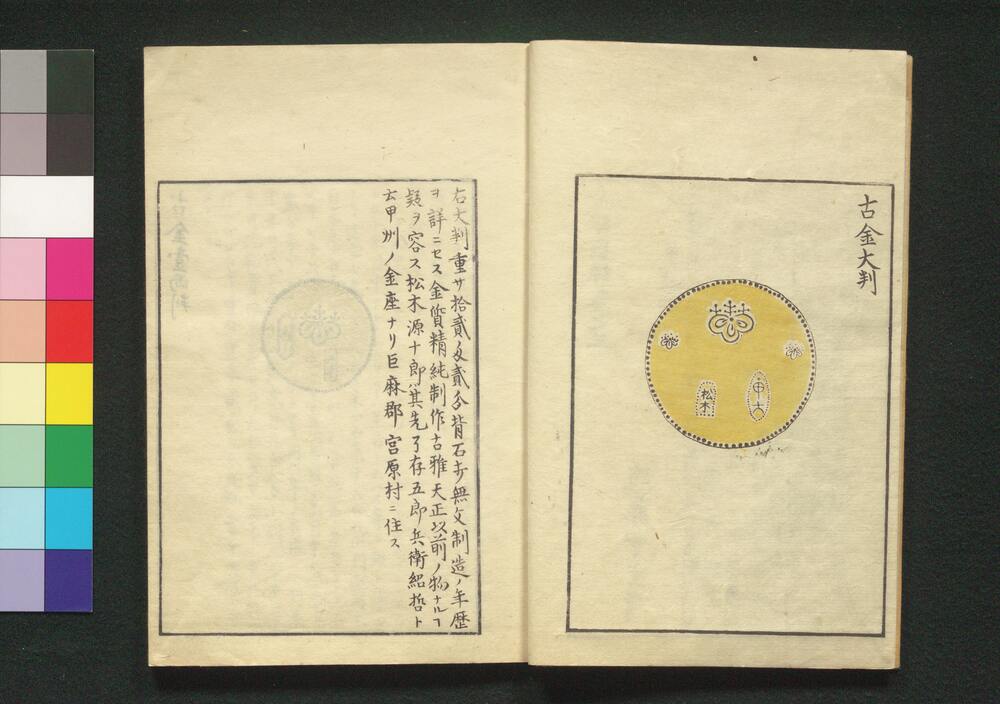 古金大判
甲大
松木
右大判重サ拾貳匁貳分背石方無文制造ノ年歴
ヲ詳ニセス金質精純制作古雅天正以前ノ物ナルヿ
疑ヲ容ス松木源十郎其先了存五郎兵衛紹哲ト
云甲州ノ金座ナリ巨麻郡宮原村ニ住ス